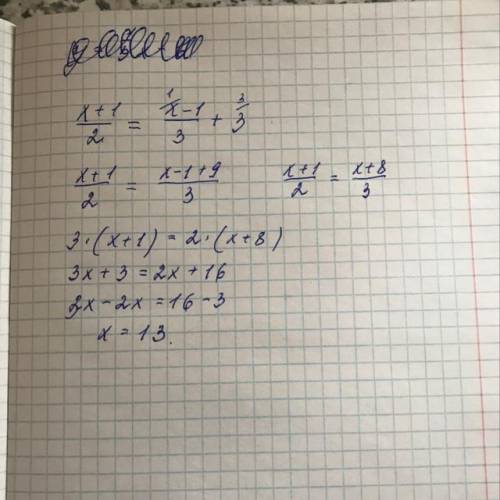 x+1/2 = ¹/x-1/3 + ³/3
x+1/2 = x-1+9/3 x+1/2 = x+8/3
3·(x+1)=2·(x+8)
3x+3=2x+16
3x-2x=16-3
x=13.